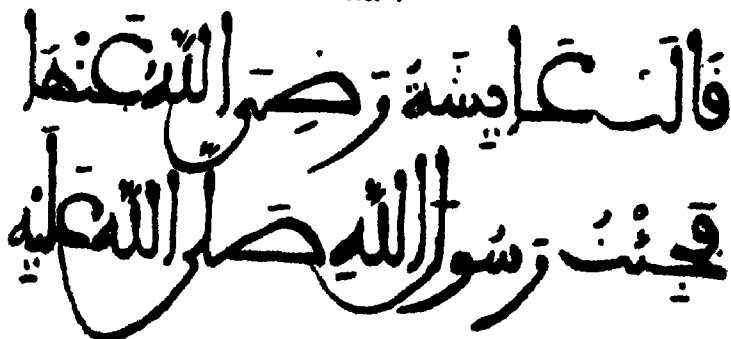 فَالَت عَايِشَةُ رَضِيَ اللَّهُ عَنْهَا
فَجِئْتُ رَسُولَ اللَّهِ صَلَّى اللَّهُ عَلَيْهِ